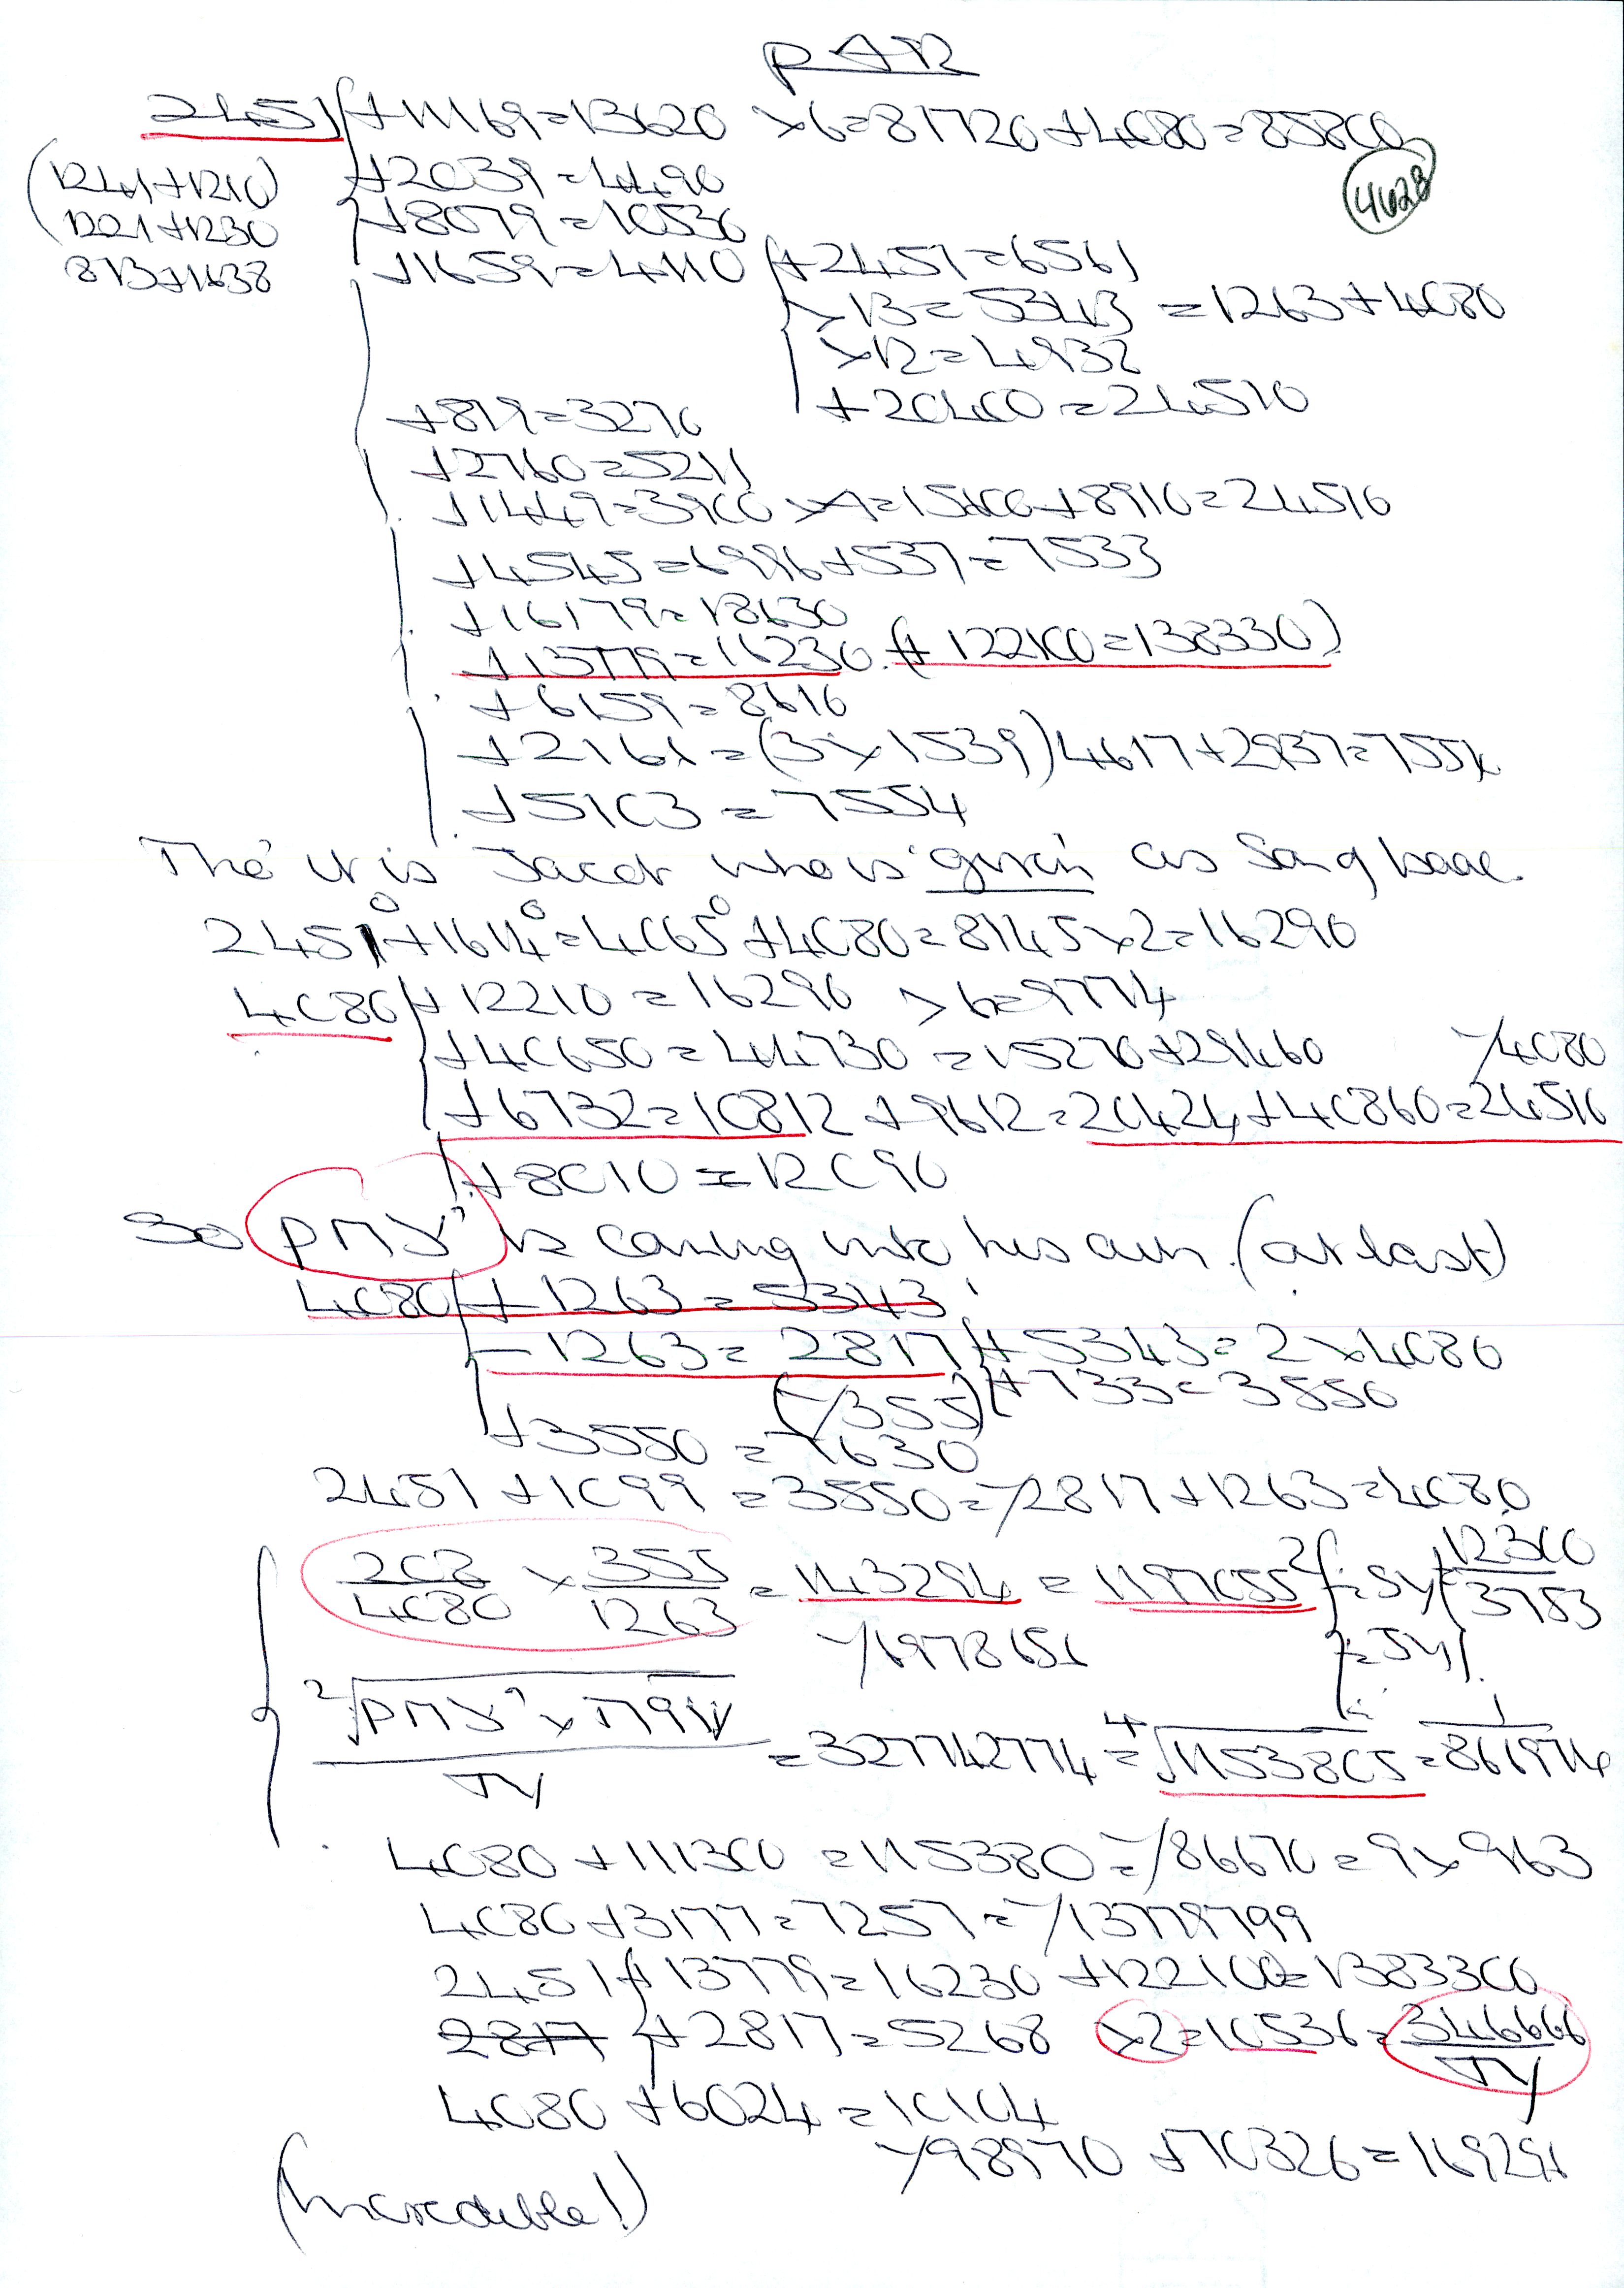 2451 + 11169 = 13620 × 6 = 81720 + 4080 = 85800
4628
(1241 + 1210) + 2039 = 4490
1221 + 1230 + 8079 = 10530
813 + 1638 + 1659 = 4110 + 2451 = 6561
× 13 = 53413 = 1263 + 4080
× 12 = 4932
+ 20400 = 24510
+ 819 = 3270
+ 2760 = 5211
+ 1449 = 3900 × 4 = 15600 + 8910 = 24510
+ 4545 = 6996 + 537 = 7533
+ 16179 = 18630
+ 13779 = 16230 (+ 122100 = 138330)
+ 6159 = 8610
+ 2166 = (3 × 1539) 4617 + 2937 = 7554
+ 5103 = 7554
Tho' it is Jacob who is 'given' as Son of Isaac.
2451° + 1614° = 4065° + 4080 = 8145 × 2 = 16290
4080 + 12210 = 16290 × 6 = 9774
+ 40650 = 44730 = 15270 + 29460 /4080
+ 6732 = 10812 + 9612 = 20424 + 40860 = 24510
+ 8010 = 12090
So is coming into his own. (at last)
4080 + 1263 = 5343
- 1263 = 2817 + 5343 = 2 × 4080
(/355) + 733 = 3550
+ 3550 = 7630
2451 + 1099 = 3550 = /2817 + 1263 = 4080
208/4080 × 355/1263 = 1143294 = 1197655² 12300/3753
/6978656
= 327742774 = ⁴√1153805 = 1/861974
4080 + 111300 = 115380 = /86670 = 9 × 963
4080 + 3177 = 7257 = /13779799
2451 + 13779 = 16230 + 122100 = 1383300
2817 + 2817 = 5268 × 2 = 10536 = 346666
4080 + 6024 = 10104
/98970 + 70326 = 169296
(Incredible!)